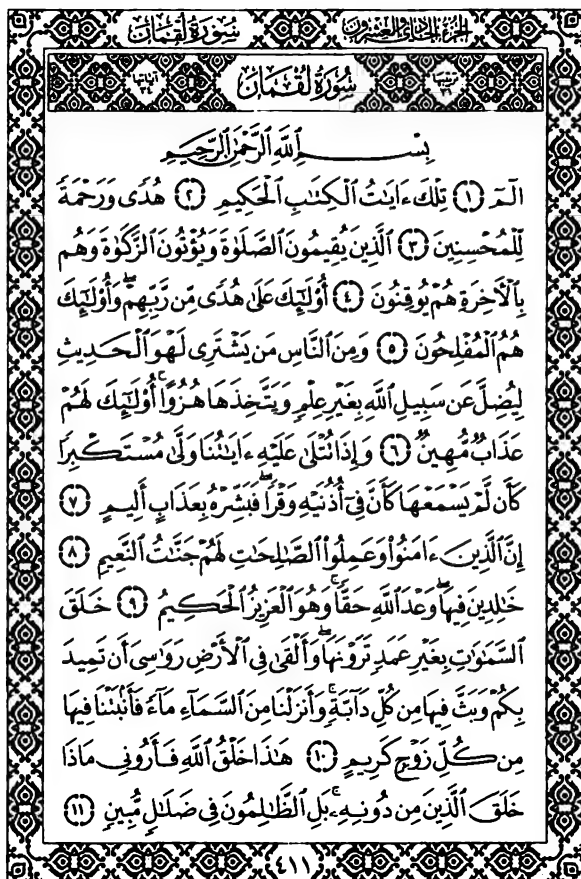 سُورَةُ لُقْمَان الجُزْءُ الحَادِي وَالعِشْرُونَ
آيَاتُهَا ٣٤ سُورَةُ لُقْمَان تَرْتِيبُهَا ٣١
بِسْمِ ٱللَّهِ ٱلرَّحْمَٰنِ ٱلرَّحِيمِ
الٓمٓ ١ تِلْكَ ءَايَٰتُ ٱلْكِتَٰبِ ٱلْحَكِيمِ ٢ هُدًى وَرَحْمَةً
لِّلْمُحْسِنِينَ ٣ ٱلَّذِينَ يُقِيمُونَ ٱلصَّلَوٰةَ وَيُؤْتُونَ ٱلزَّكَوٰةَ وَهُم
بِٱلْأَخِرَةِ هُمْ يُوقِنُونَ ٤ أُوْلَٰٓئِكَ عَلَىٰ هُدًى مِّن رَّبِّهِمْۖ وَأُوْلَٰٓئِكَ
هُمُ ٱلْمُفْلِحُونَ ٥ وَمِنَ ٱلنَّاسِ مَن يَشْتَرِى لَهْوَ ٱلْحَدِيثِ
لِيُضِلَّ عَن سَبِيلِ ٱللَّهِ بِغَيْرِ عِلْمٍ وَيَتَّخِذَهَا هُزُوًاۚ أُوْلَٰٓئِكَ لَهُمْ
عَذَابٌ مُّهِينٌ ٦ وَإِذَا تُتْلَىٰ عَلَيْهِ ءَايَٰتُنَا وَلَّىٰ مُسْتَكْبِرًا
كَأَن لَّمْ يَسْمَعْهَا كَأَنَّ فِىٓ أُذُنَيْهِ وَقْرًاۖ فَبَشِّرْهُ بِعَذَابٍ أَلِيمٍ ٧
إِنَّ ٱلَّذِينَ ءَامَنُوا۟ وَعَمِلُوا۟ ٱلصَّٰلِحَٰتِ لَهُمْ جَنَّٰتُ ٱلنَّعِيمِ ٨
خَٰلِدِينَ فِيهَاۖ وَعْدَ ٱللَّهِ حَقًّاۚ وَهُوَ ٱلْعَزِيزُ ٱلْحَكِيمُ ٩ خَلَقَ
ٱلسَّمَٰوَٰتِ بِغَيْرِ عَمَدٍ تَرَوْنَهَاۖ وَأَلْقَىٰ فِى ٱلْأَرْضِ رَوَٰسِىَ أَن تَمِيدَ
بِكُمْ وَبَثَّ فِيهَا مِن كُلِّ دَآبَّةٍۚ وَأَنزَلْنَا مِنَ ٱلسَّمَآءِ مَآءً فَأَنۢبَتْنَا فِيهَا
مِن كُلِّ زَوْجٍ كَرِيمٍ ١٠ هَٰذَا خَلْقُ ٱللَّهِ فَأَرُونِى مَاذَا
خَلَقَ ٱلَّذِينَ مِن دُونِهِۦۚ بَلِ ٱلظَّٰلِمُونَ فِى ضَلَٰلٍ مُّبِينٍ ١١
٤١١